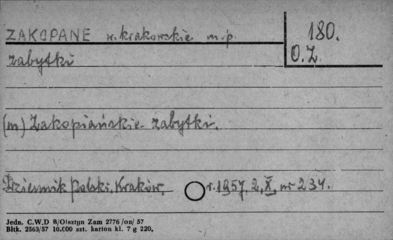 ZAKOPANE w. krakowskie m.p.
180.
O.Z.
zabytki
(m) Zakopiańskie zabytki.
Dziennik Polski, Kraków, r. 1957, 2, X, nr 234.
Jedn. C.W.D 8/Olsztyn Zam 2776 /on/ 57
Bltk. 2563/57 10.000 szt. karton kl. 7 g 220,